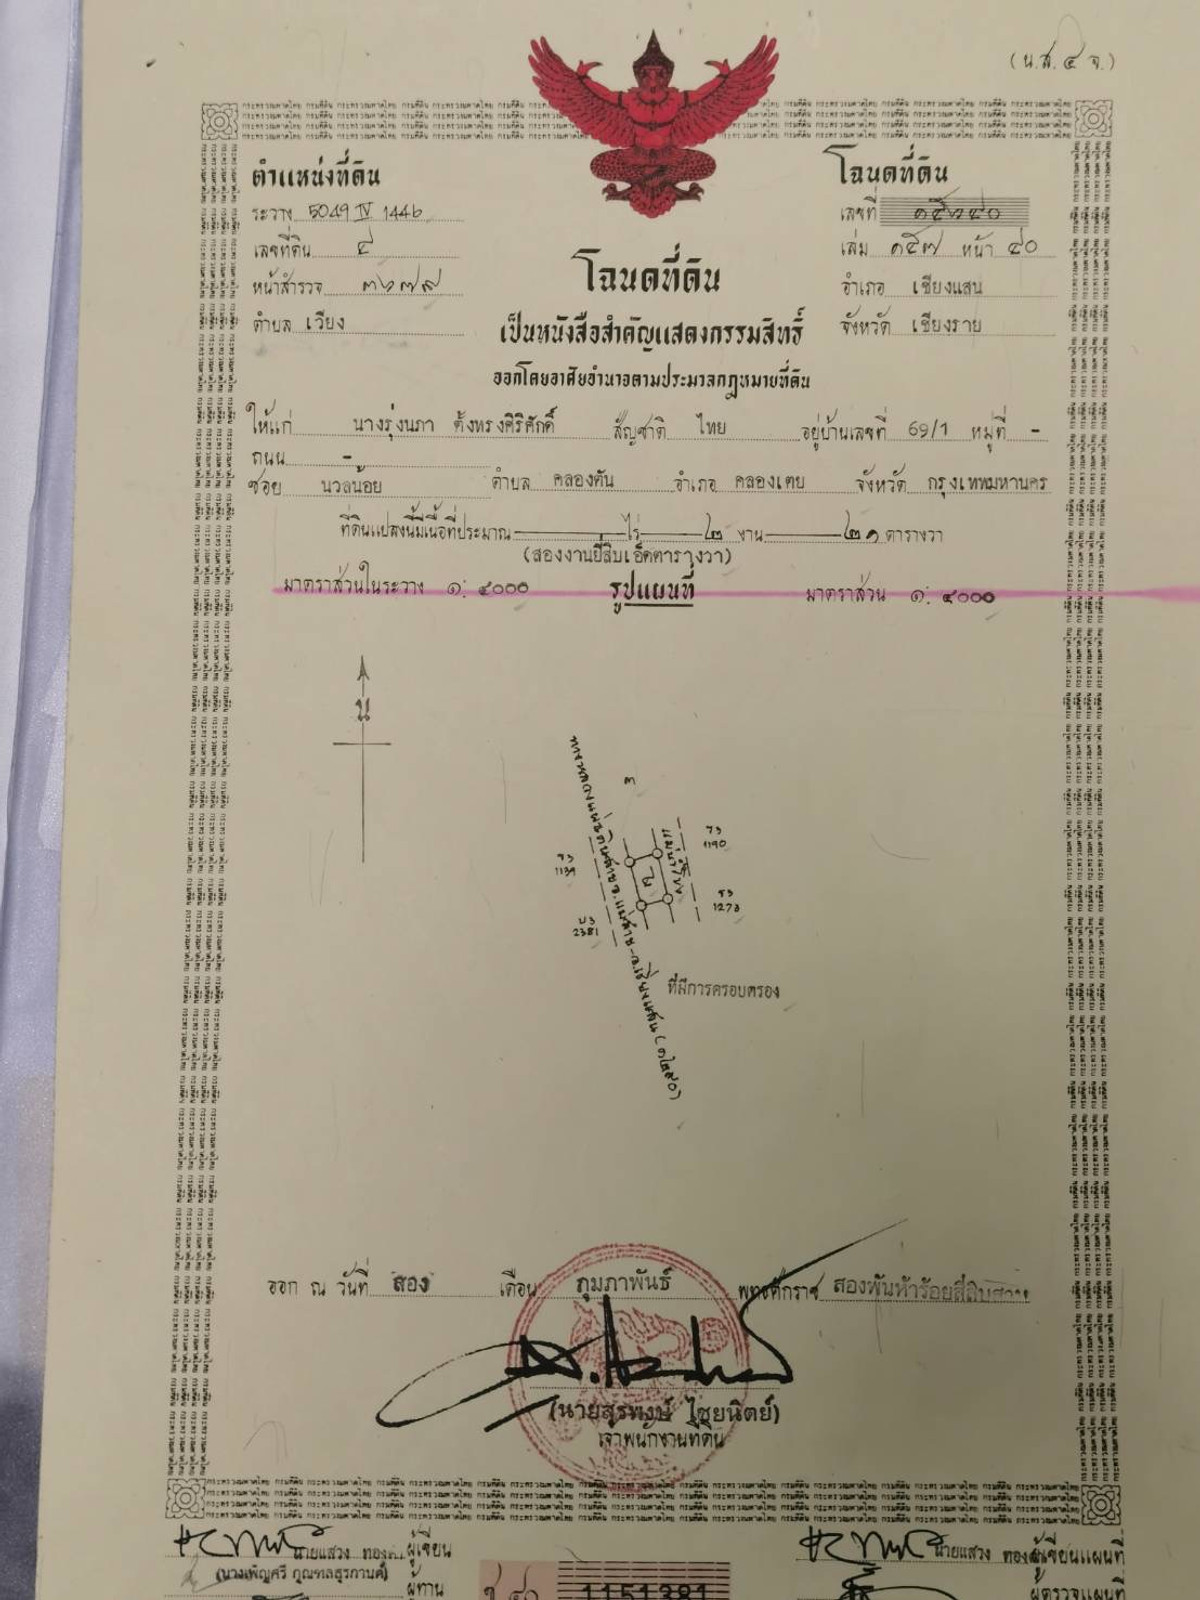 (น.ส.๔ จ.)
ตำแหน่งที่ดิน
ระวาง 5049 IV 1446
เลขที่ดิน ๔
หน้าสำรวจ ๓๖๗๙
ตำบล เวียง
โฉนดที่ดิน
เลขที่
เล่ม ๑๕๗ หน้า ๔๐
อำเภอ เชียงแสน
จังหวัด เชียงราย
โฉนดที่ดิน
เป็นหนังสือสำคัญแสดงกรรมสิทธิ์
ออกโดยอาศัยอำนาจตามประมวลกฎหมายที่ดิน
ให้แก่ นางรุ่งนภา ตั้งทรงศิริศักดิ์ สัญชาติ ไทย อยู่บ้านเลขที่ 69/1 หมู่ที่ -
ถนน -
ซอย นวลน้อย ตำบล คลองตัน อำเภอ คลองเตย จังหวัด กรุงเทพมหานคร
ที่ดินแปลงนี้มีเนื้อที่ประมาณ ไร่ ๒ งาน ๒๑ ตารางวา
(สองงานยี่สิบเอ็ดตารางวา)
มาตราส่วนในระวาง ๑: ๔๐๐๐ รูปแผนที่ มาตราส่วน ๑: ๔๐๐๐
น
๓
ทางหลวงแผ่นดินสาย อ.แม่สาย-อ.เชียงแสน (๑๒๙๐)
แม่น้ำโขง
ร3
1190
ร3
1139
ร3
1273
บ3
2381
ที่มีการครอบครอง
ออก ณ วันที่ สอง เดือน กุมภาพันธ์ พุทธศักราช สองพันห้าร้อยสี่สิบสาม
(นายสุรพงษ์ ไชยนิตย์)
เจ้าพนักงานที่ดิน
นายแสวง ผู้เขียน
(นางเพ็ญศรี กุณฑลสุรกานต์)
ผู้ทาน
นายแสวง ผู้เขียนแผนที่
ผู้ตรวจแผนที่
1151381